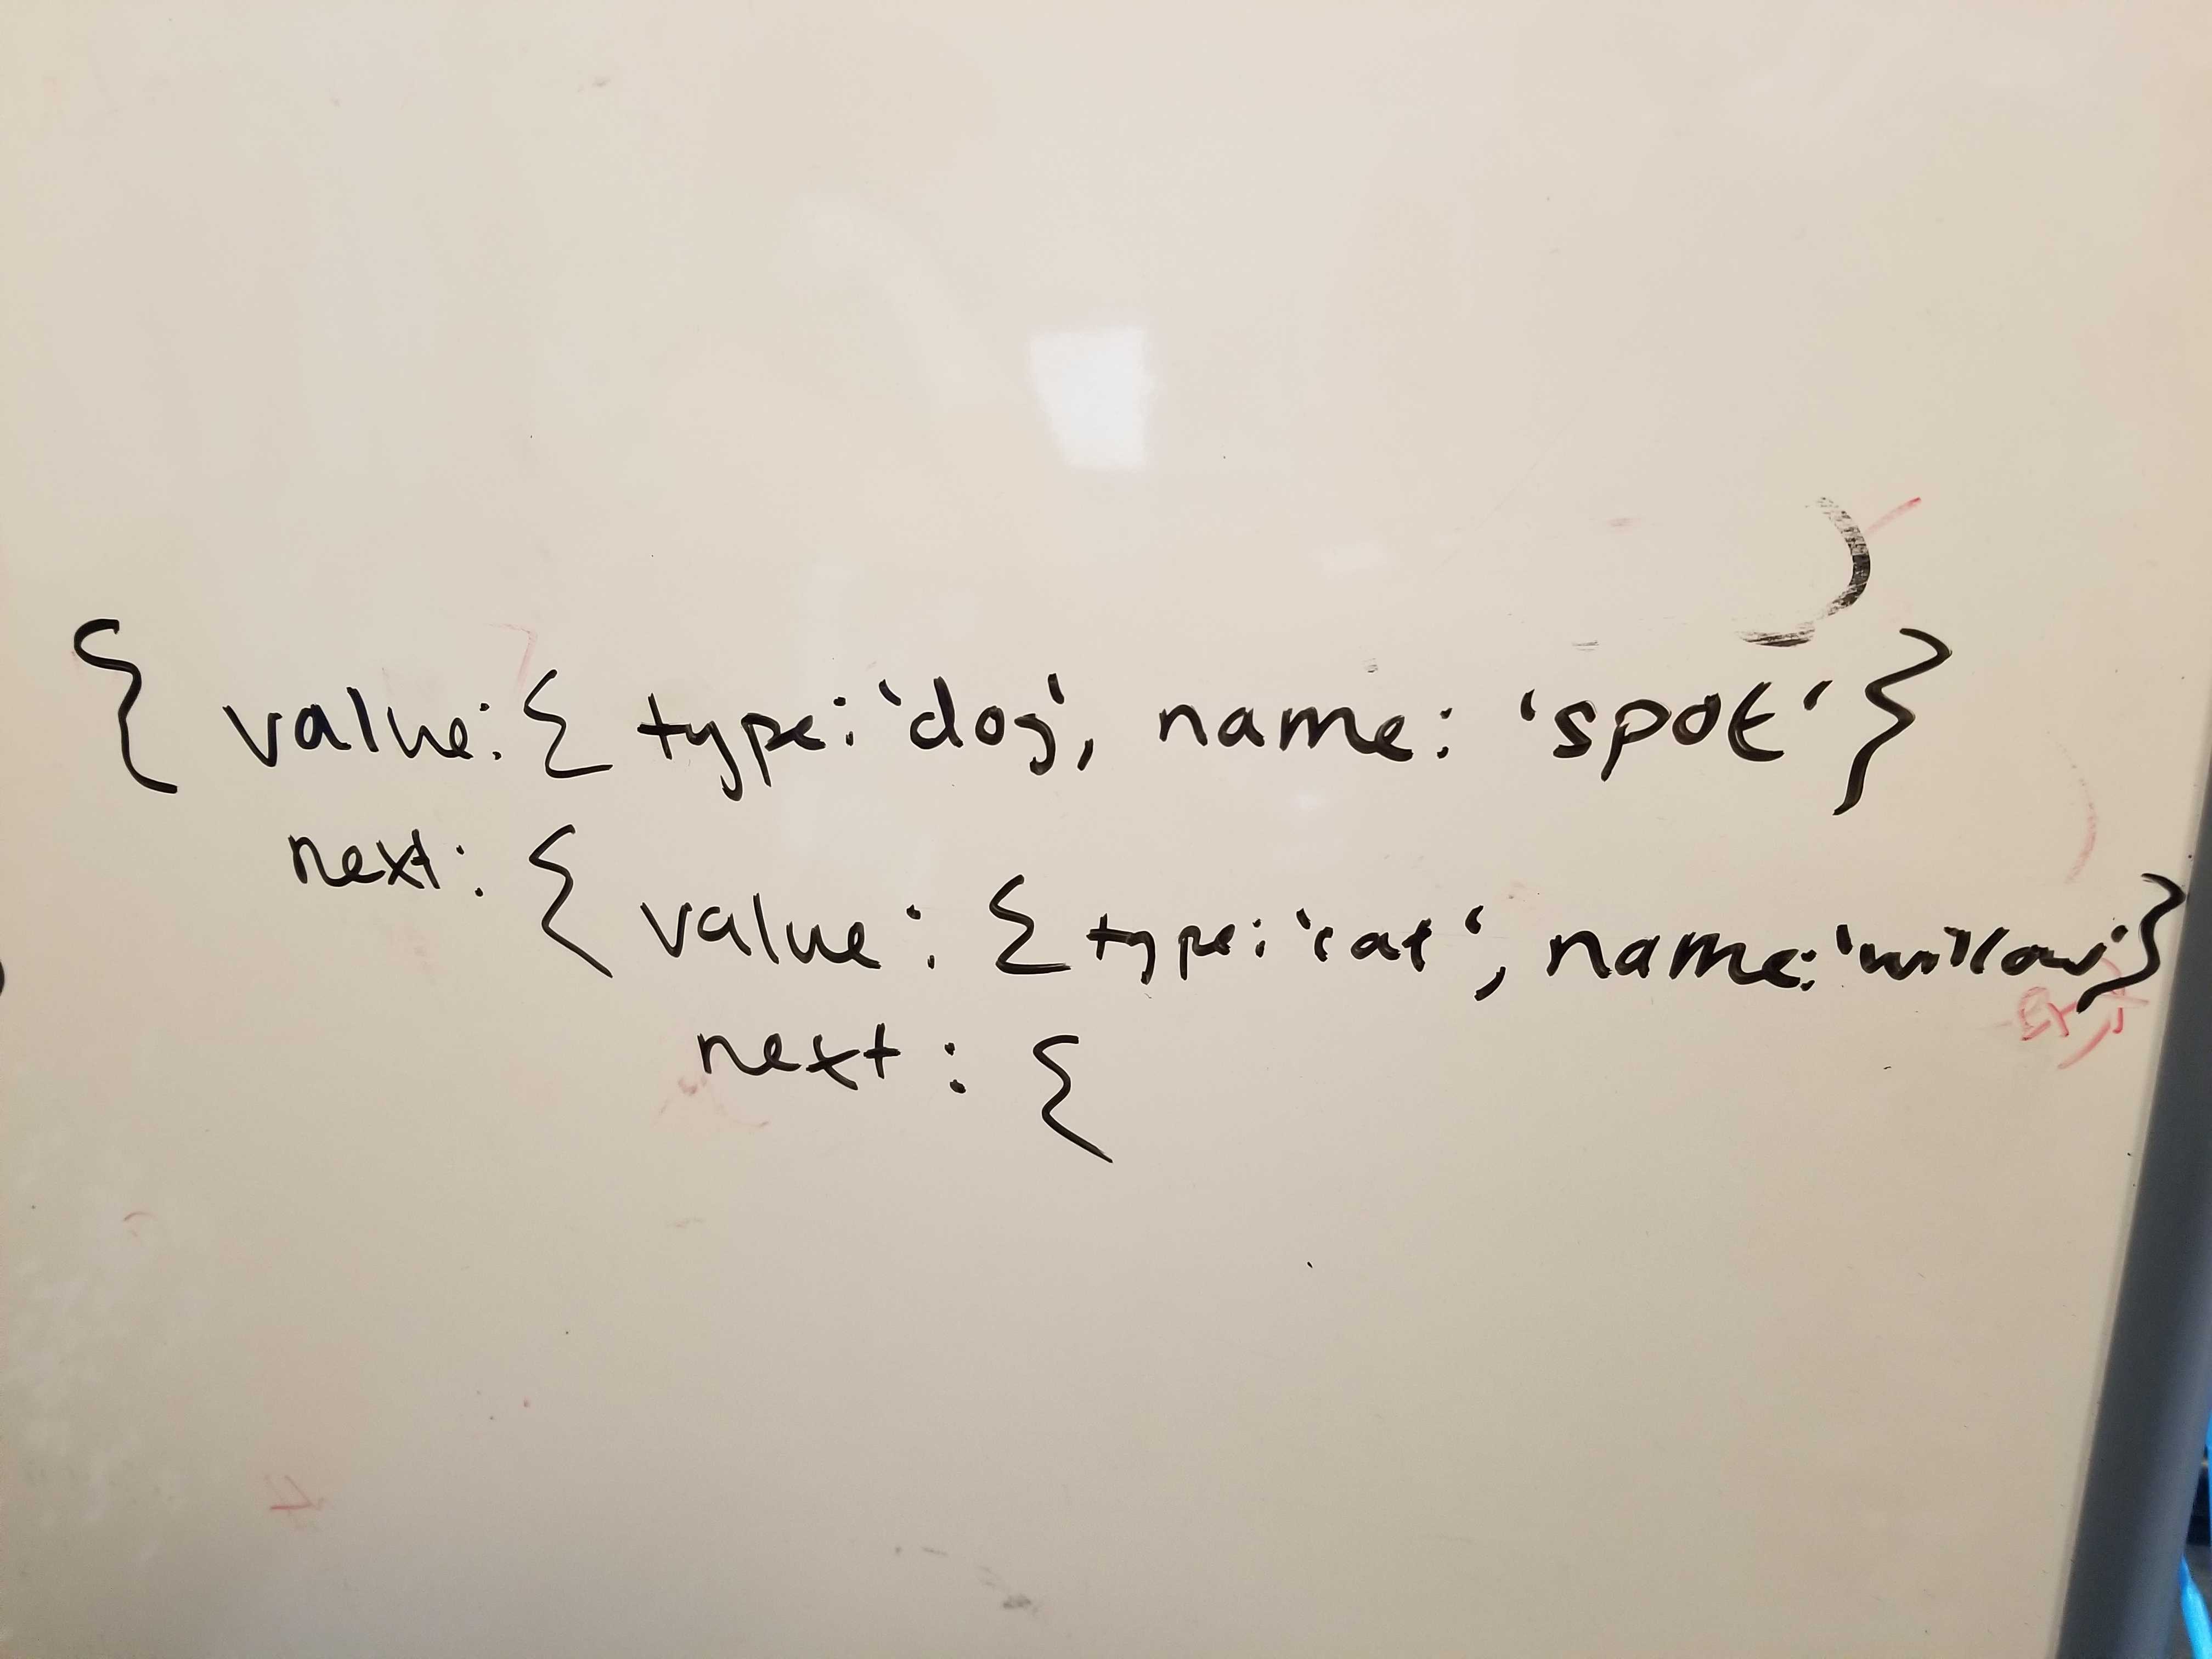 { value: { type: 'dog', name: 'spot' }
next: { value: { type: 'cat', name: 'willow' }
next: {